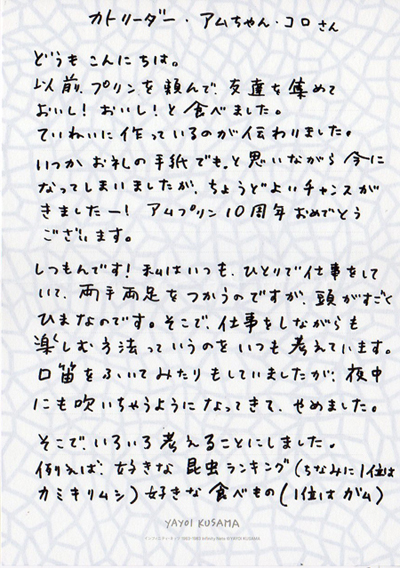 カトリーダー・アムちゃん・コロさん
どうもこんにちは。
以前、プリンを頼んで、友達を集めて
おいし!おいし!と食べました。
ていねいに作っているのが伝わりました。
いつかお礼の手紙でも。と思いながら今に
なってしまいましたが、ちょうどよいチャンスが
きましたー!アムプリン10周年おめでとう
ございます。
しつもんです!私はいつも、ひとりで仕事をして
いて、両手両足をつかうのですが、頭がすごく
ひまなのです。そこで、仕事をしながらも
楽しむ方法っていうのをいつも考えています。
口笛をふいてみたりもしていましたが、夜中
にも吹いちゃうようになってきて、やめました。
そこで、いろいろ考えることにしました。
例えば、好きな昆虫ランキング(ちなみに1位は
カミキリムシ)好きな食べもの(1位はガム)
YAYOI KUSAMA
YAYOI KUSAMA